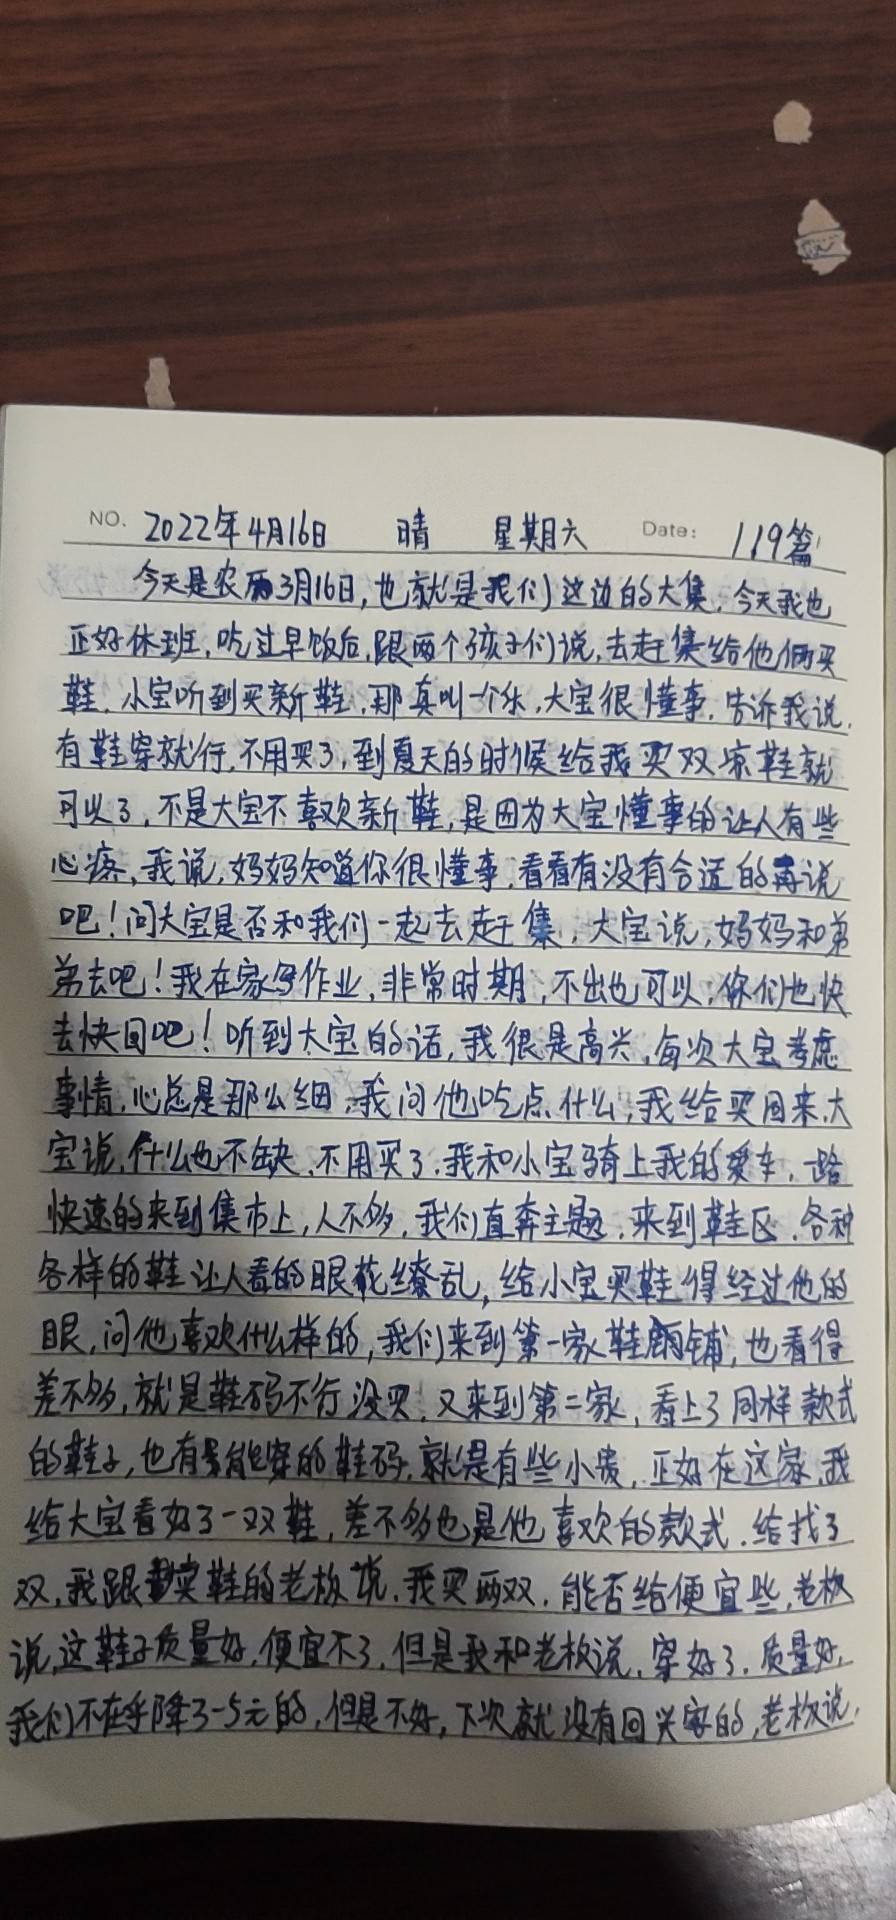 NO. 2022年4月16日 晴 星期六 Date: 119篇
今天是农历3月16日,也就是我们这边的大集,今天我也
正好休班,吃过早饭后,跟两个孩子们说,去赶集给他俩买
鞋,小宝听到买新鞋,那真叫一个乐,大宝很懂事,告诉我说,
有鞋穿就行,不用买了,到夏天的时候给我买双凉鞋就
可以了,不是大宝不喜欢新鞋,是因为大宝懂事的让人有些
心疼,我说,妈妈知道你很懂事,看看有没有合适的再说
吧!问大宝是否和我们一起去赶集,大宝说,妈妈和弟
弟去吧!我在家写作业,非常时期,不出也可以,你们也快
去快回吧!听到大宝的话,我很是高兴,每次大宝考虑
事情,心总是那么细,我问他吃点什么,我给买回来,大
宝说,什么也不缺,不用买了,我和小宝骑上我的爱车,一路
快速的来到集市上,人不多,我们直奔主题,来到鞋区,各种
各样的鞋让人看的眼花缭乱,给小宝买鞋得经过他的
眼,问他喜欢什么样的,我们来到第一家鞋铺,也看得
差不多,就是鞋码不行没买,又来到第二家,看上了同样款式
的鞋子,也有能穿的鞋码,就是有些小贵,正好在这家,我
给大宝看好了一双鞋,差不多也是他喜欢的款式,给找了
双,我跟卖鞋的老板说,我买两双,能否给便宜些,老板
说,这鞋子质量好,便宜不了,但是我和老板说,穿好了,质量好,
我们不在乎降3-5元的,但是不好,下次就没有回头客的,老板说,